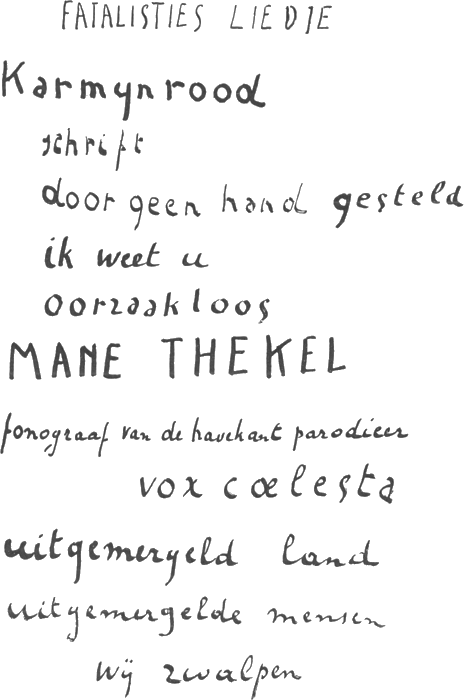 FATALISTIES LIEDJE
Karmynrood
schrift
door geen hand gesteld
ik weet u
oorzaakloos
MANE THEKEL
fonograaf van de havekant parodieer
vox cœlesta
uitgemergeld land
uitgemergelde mensen
wij zwalpen